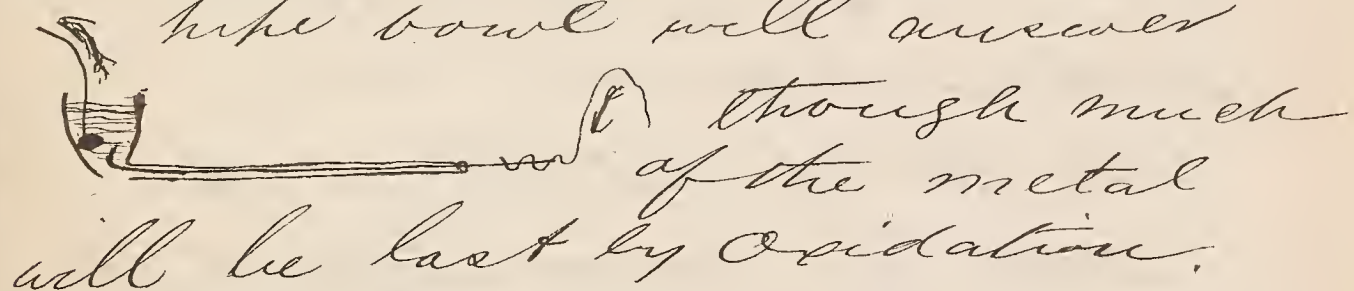 pipe bowl will answer
though much
of the metal
will be lost by Oxidation.